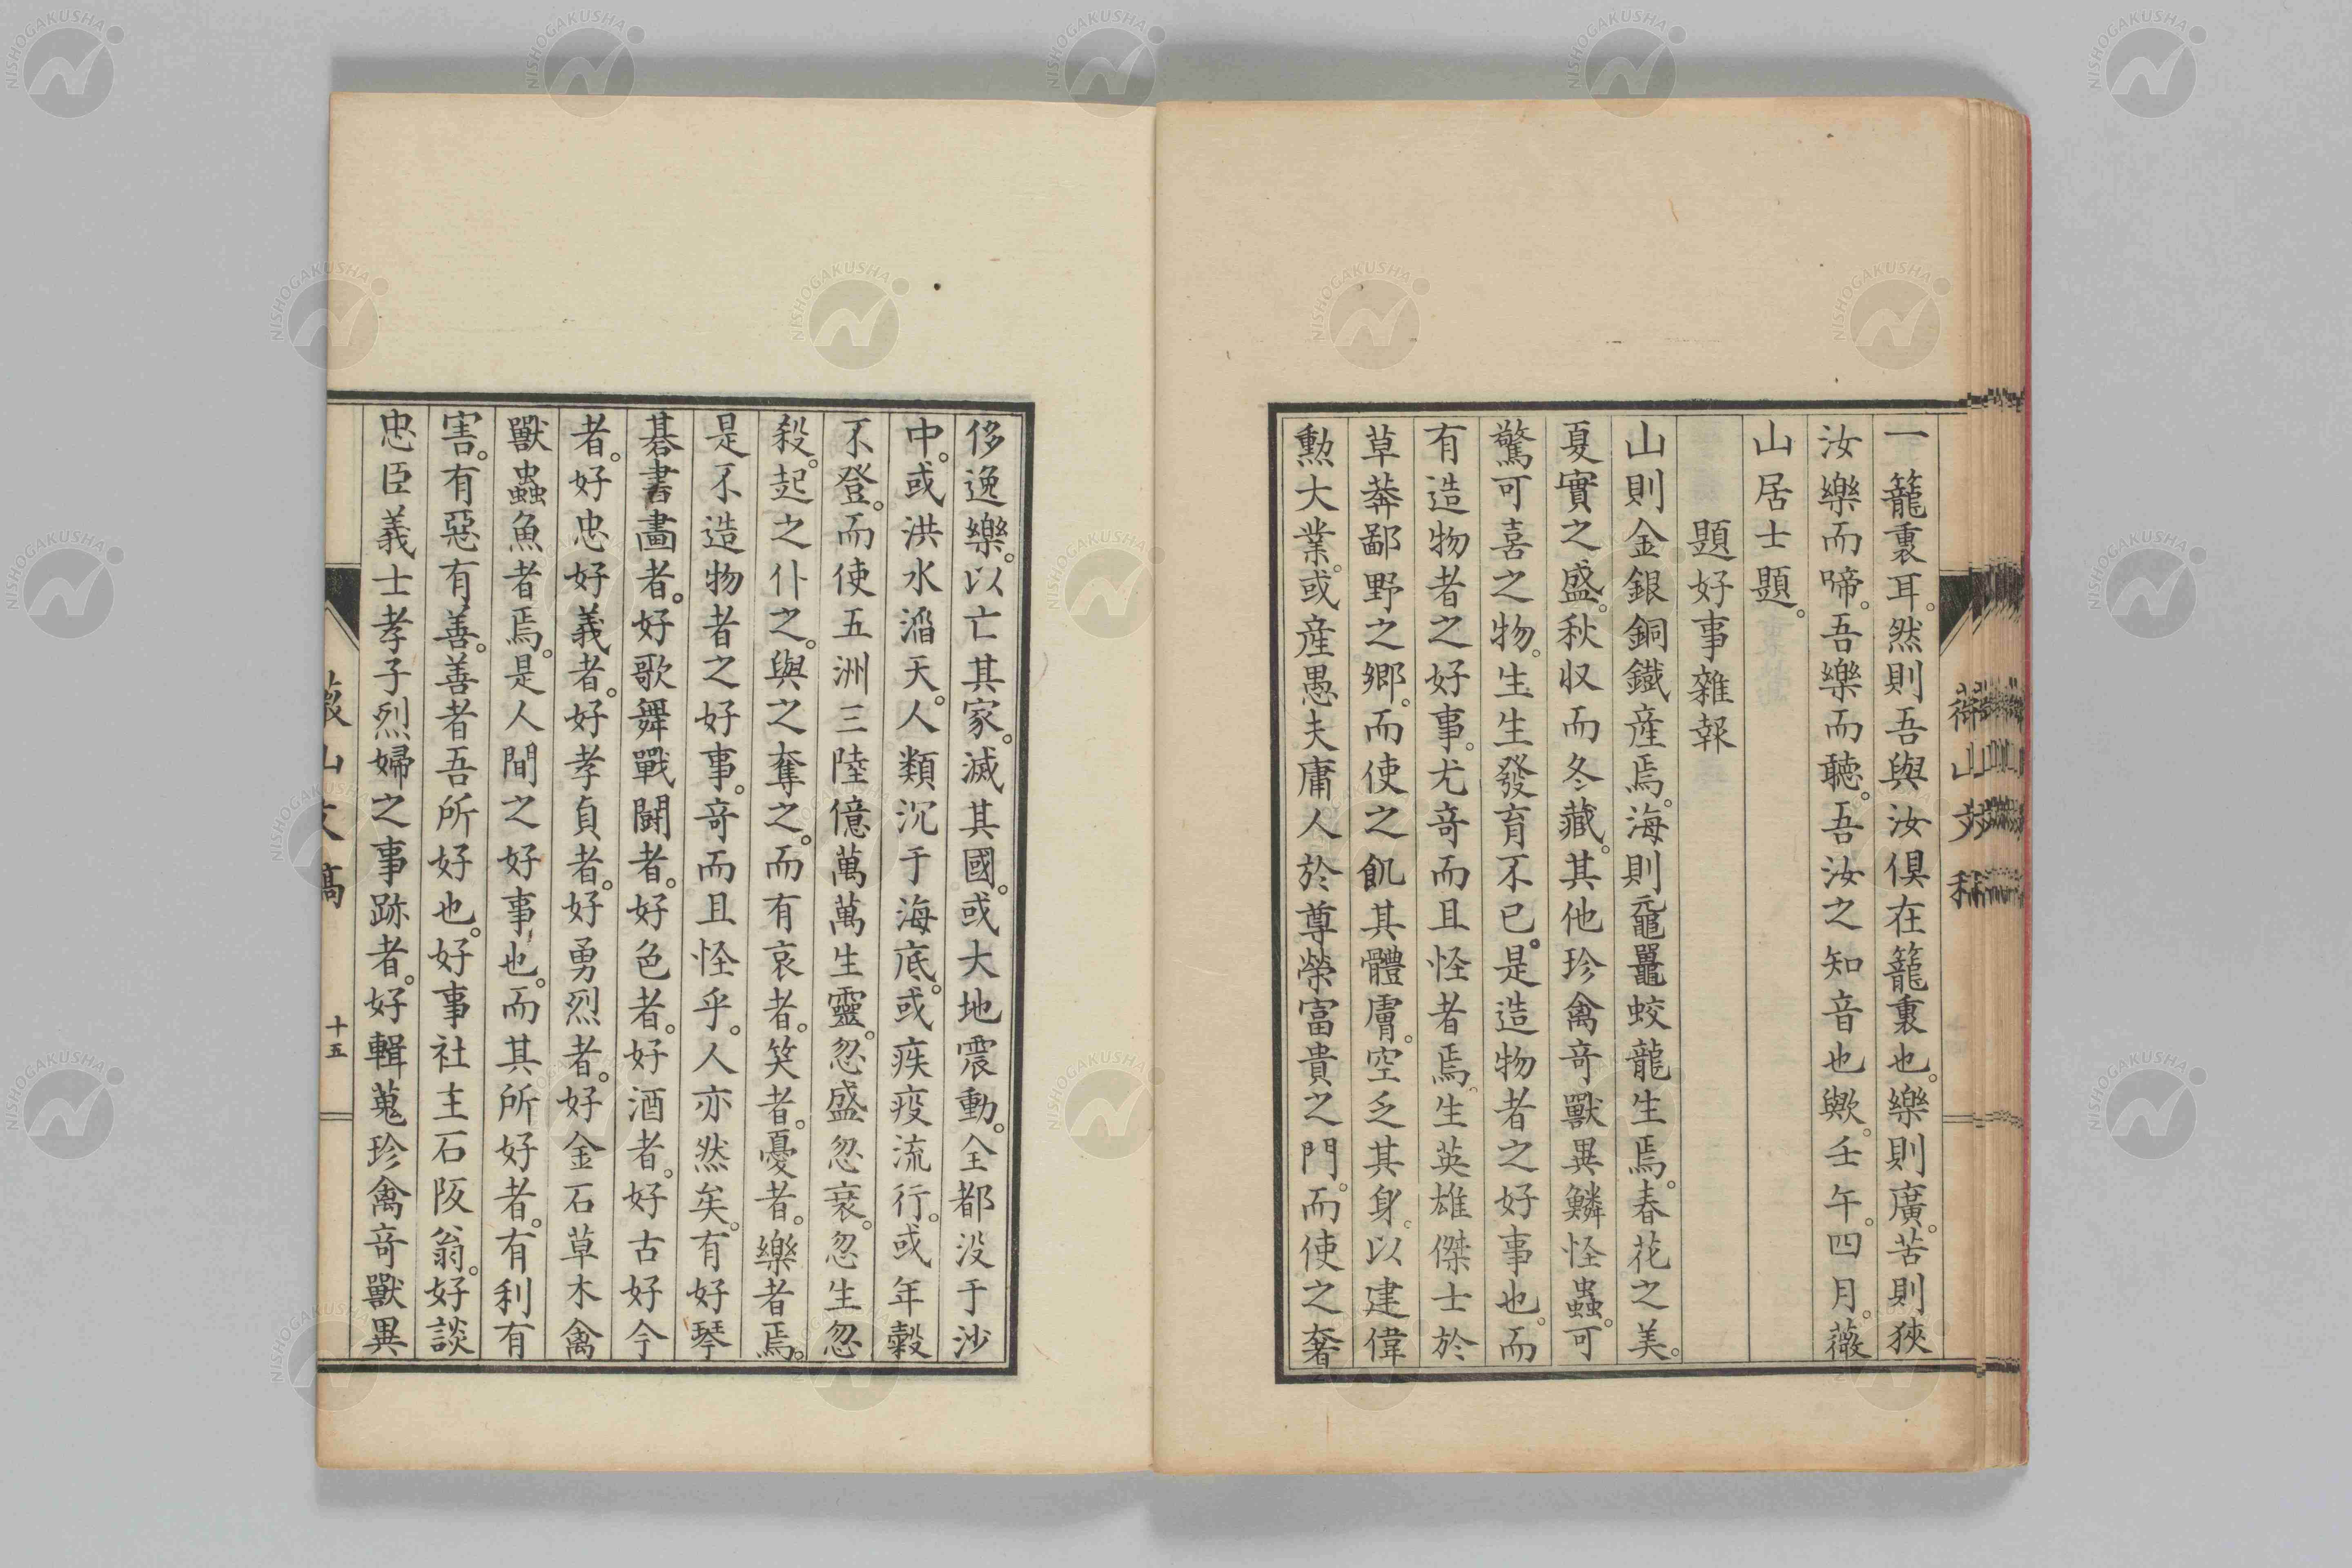 一籠裏耳。然則吾與汝俱在籠裏也。樂則廣。苦則狹
汝樂而啼。吾樂而聽。吾汝之知音也歟。壬午。四月。薇
山居士題。
題好事雜報
山則金銀銅鐵産焉。海則黿鼉蛟龍生焉。春花之美。
夏實之盛。秋収而冬藏。其他珍禽竒獸異鱗怪蟲。可
驚可喜之物。生生發育不已。是造物者之好事也。而
有造物者之好事。尤竒而且怪者焉。生英雄傑士於
草莽鄙野之鄉。而使之飢其體膚。空乏其身。以建偉
勲大業。或産愚夫庸人於尊榮富貴之門。而使之奢
侈逸樂。以亡其家。滅其國。或大地震動。全都没于沙
中。或洪水滔天。人類沉于海底。或疾疫流行。或年穀
不登。而使五洲三陸億萬萬生靈。忽盛忽衰。忽生忽
殺。起之仆之。與之奪之。而有哀者。笑者。憂者。樂者焉。
是不造物者之好事。竒而且怪乎。人亦然矣。有好琴
碁書畫者。好歌舞戰鬪者。好色者。好酒者。好古好今
者。好忠好義者。好孝貞者。好勇烈者。好金石草木禽
獸蟲魚者焉。是人間之好事也。而其所好者。有利有
害。有惡有善。善者吾所好也。好事社主石阪翁。好談
忠臣義士孝子烈婦之事跡者。好輯蒐珍禽竒獸異
薇山文稿
十五